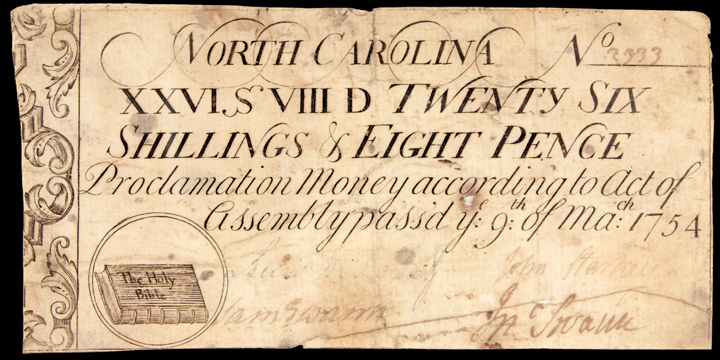 NORTH CAROLINA Nº 2333
XXVI,S VIII D TWENTY SIX
SHILLINGS & EIGHT PENCE
Proclamation Money according to Act of
Assembly pass'd yᵉ: 9:ᵗʰ of Maᶜʰ: 1754
The Holy
Bible
John
Sam Swann
Jnº Swann